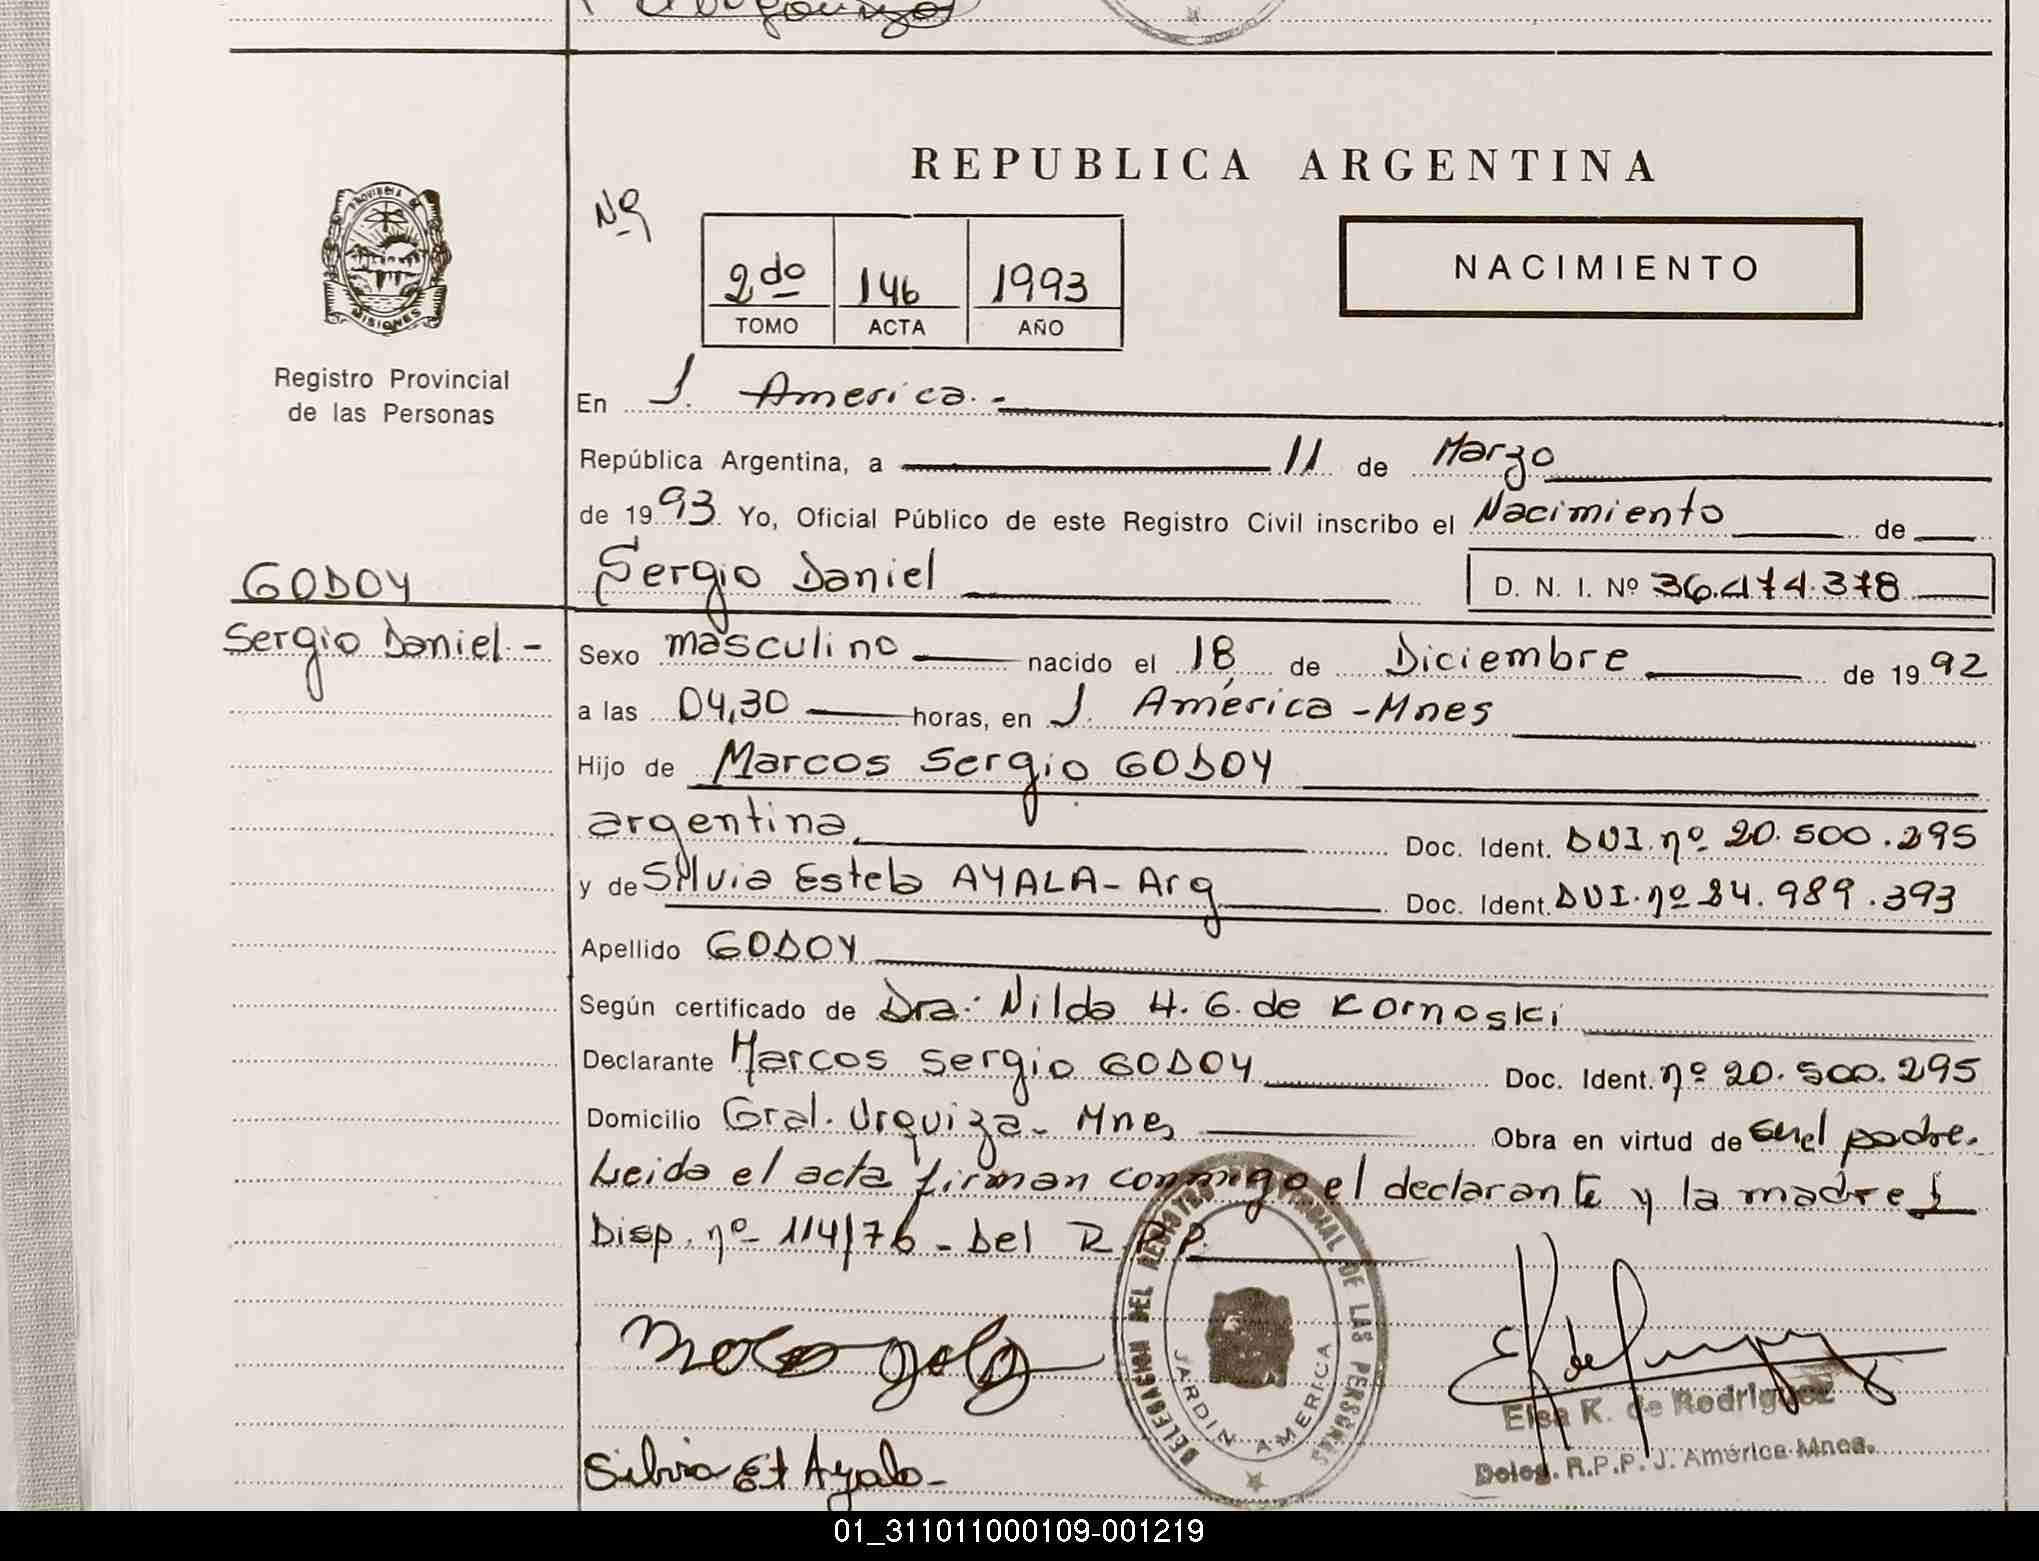 REPUBLICA ARGENTINA
Nº
NACIMIENTO
2do 146 1993
TOMO ACTA AÑO
PROVINCIA DE
MISIONES
Registro Provincial
de las Personas
En J. America.-
República Argentina, a 11 de Marzo
de 1993. Yo, Oficial Público de este Registro Civil inscribo el Nacimiento de
GODOY
Sergio Daniel.-
Sergio Daniel D. N. I. Nº 36.474.378
Sexo masculino nacido el 18 de Diciembre de 1992
a las 04,30 horas, en J. América - Mnes
Hijo de Marcos Sergio GODOY
argentina Doc. Ident. DUI. nº 20.500.295
y de Silvia Estela AYALA - Arg Doc. Ident. DUI. nº 24.989.393
Apellido GODOY
Según certificado de Dra: Nilda H. G. de Kornoski
Declarante Marcos Sergio GODOY Doc. Ident. nº 20.500.295
Domicilio Gral. Urquiza - Mnes Obra en virtud de ser el padre.
Leida el acta firman conmigo el declarante y la madre
Disp. nº 114/76 - Del R.P.P.
DELEGACION DEL REGISTRO PROVINCIAL DE LAS PERSONAS
JARDIN AMERICA
Silvia Et Ayala -
Elsa K. de Rodriguez
Deleg. R.P.P. J. América Mnes.
01_311011000109-001219